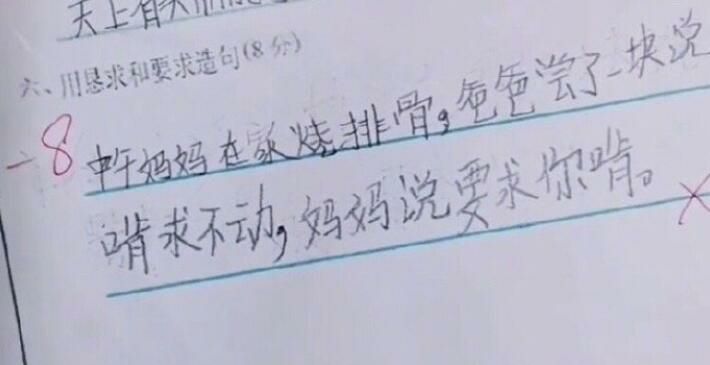 六、用恳求和要求造句(8分)
-8
中午妈妈在家烧排骨,爸爸尝了一块说
啃求不动,妈妈说要求你啃。